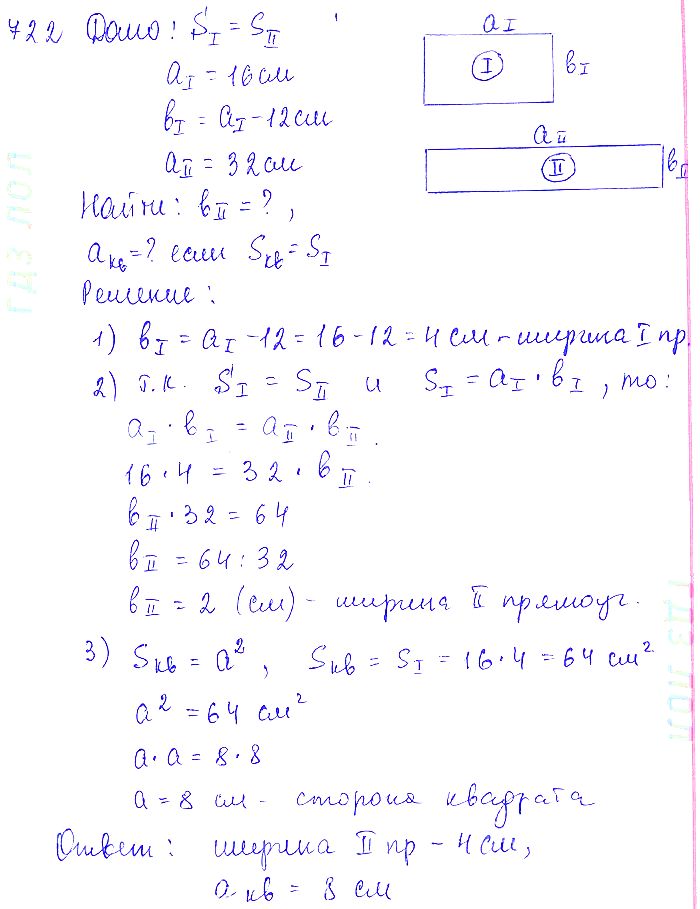 722 Дано: S_I = S_II
a_I = 16 см
в_I = a_I - 12 см
a_II = 32 см
Найти: в_II = ?,
a_кв = ? если S_кв = S_I
a_I
I
в_I
a_II
II
в_II
Решение:
1) в_I = a_I - 12 = 16 - 12 = 4 см - ширина I пр.
2) т.к. S_I = S_II и S_I = a_I · в_I, то:
a_I · в_I = a_II · в_II.
16 · 4 = 32 · в_II.
в_II · 32 = 64
в_II = 64 : 32
в_II = 2 (см) - ширина II прямоуг.
3) S_кв = a², S_кв = S_I = 16 · 4 = 64 см²
a² = 64 см²
a · a = 8 · 8
a = 8 см - сторона квадрата
Ответ: ширина II пр - 4 см,
a кв = 8 см
ГДЗ ЛОЛ
ГДЗ ЛОЛ